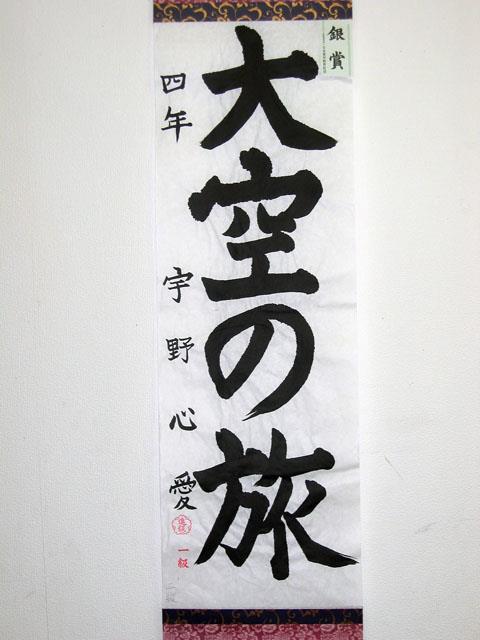 銀賞
大空の旅
四年 宇野心愛
一級